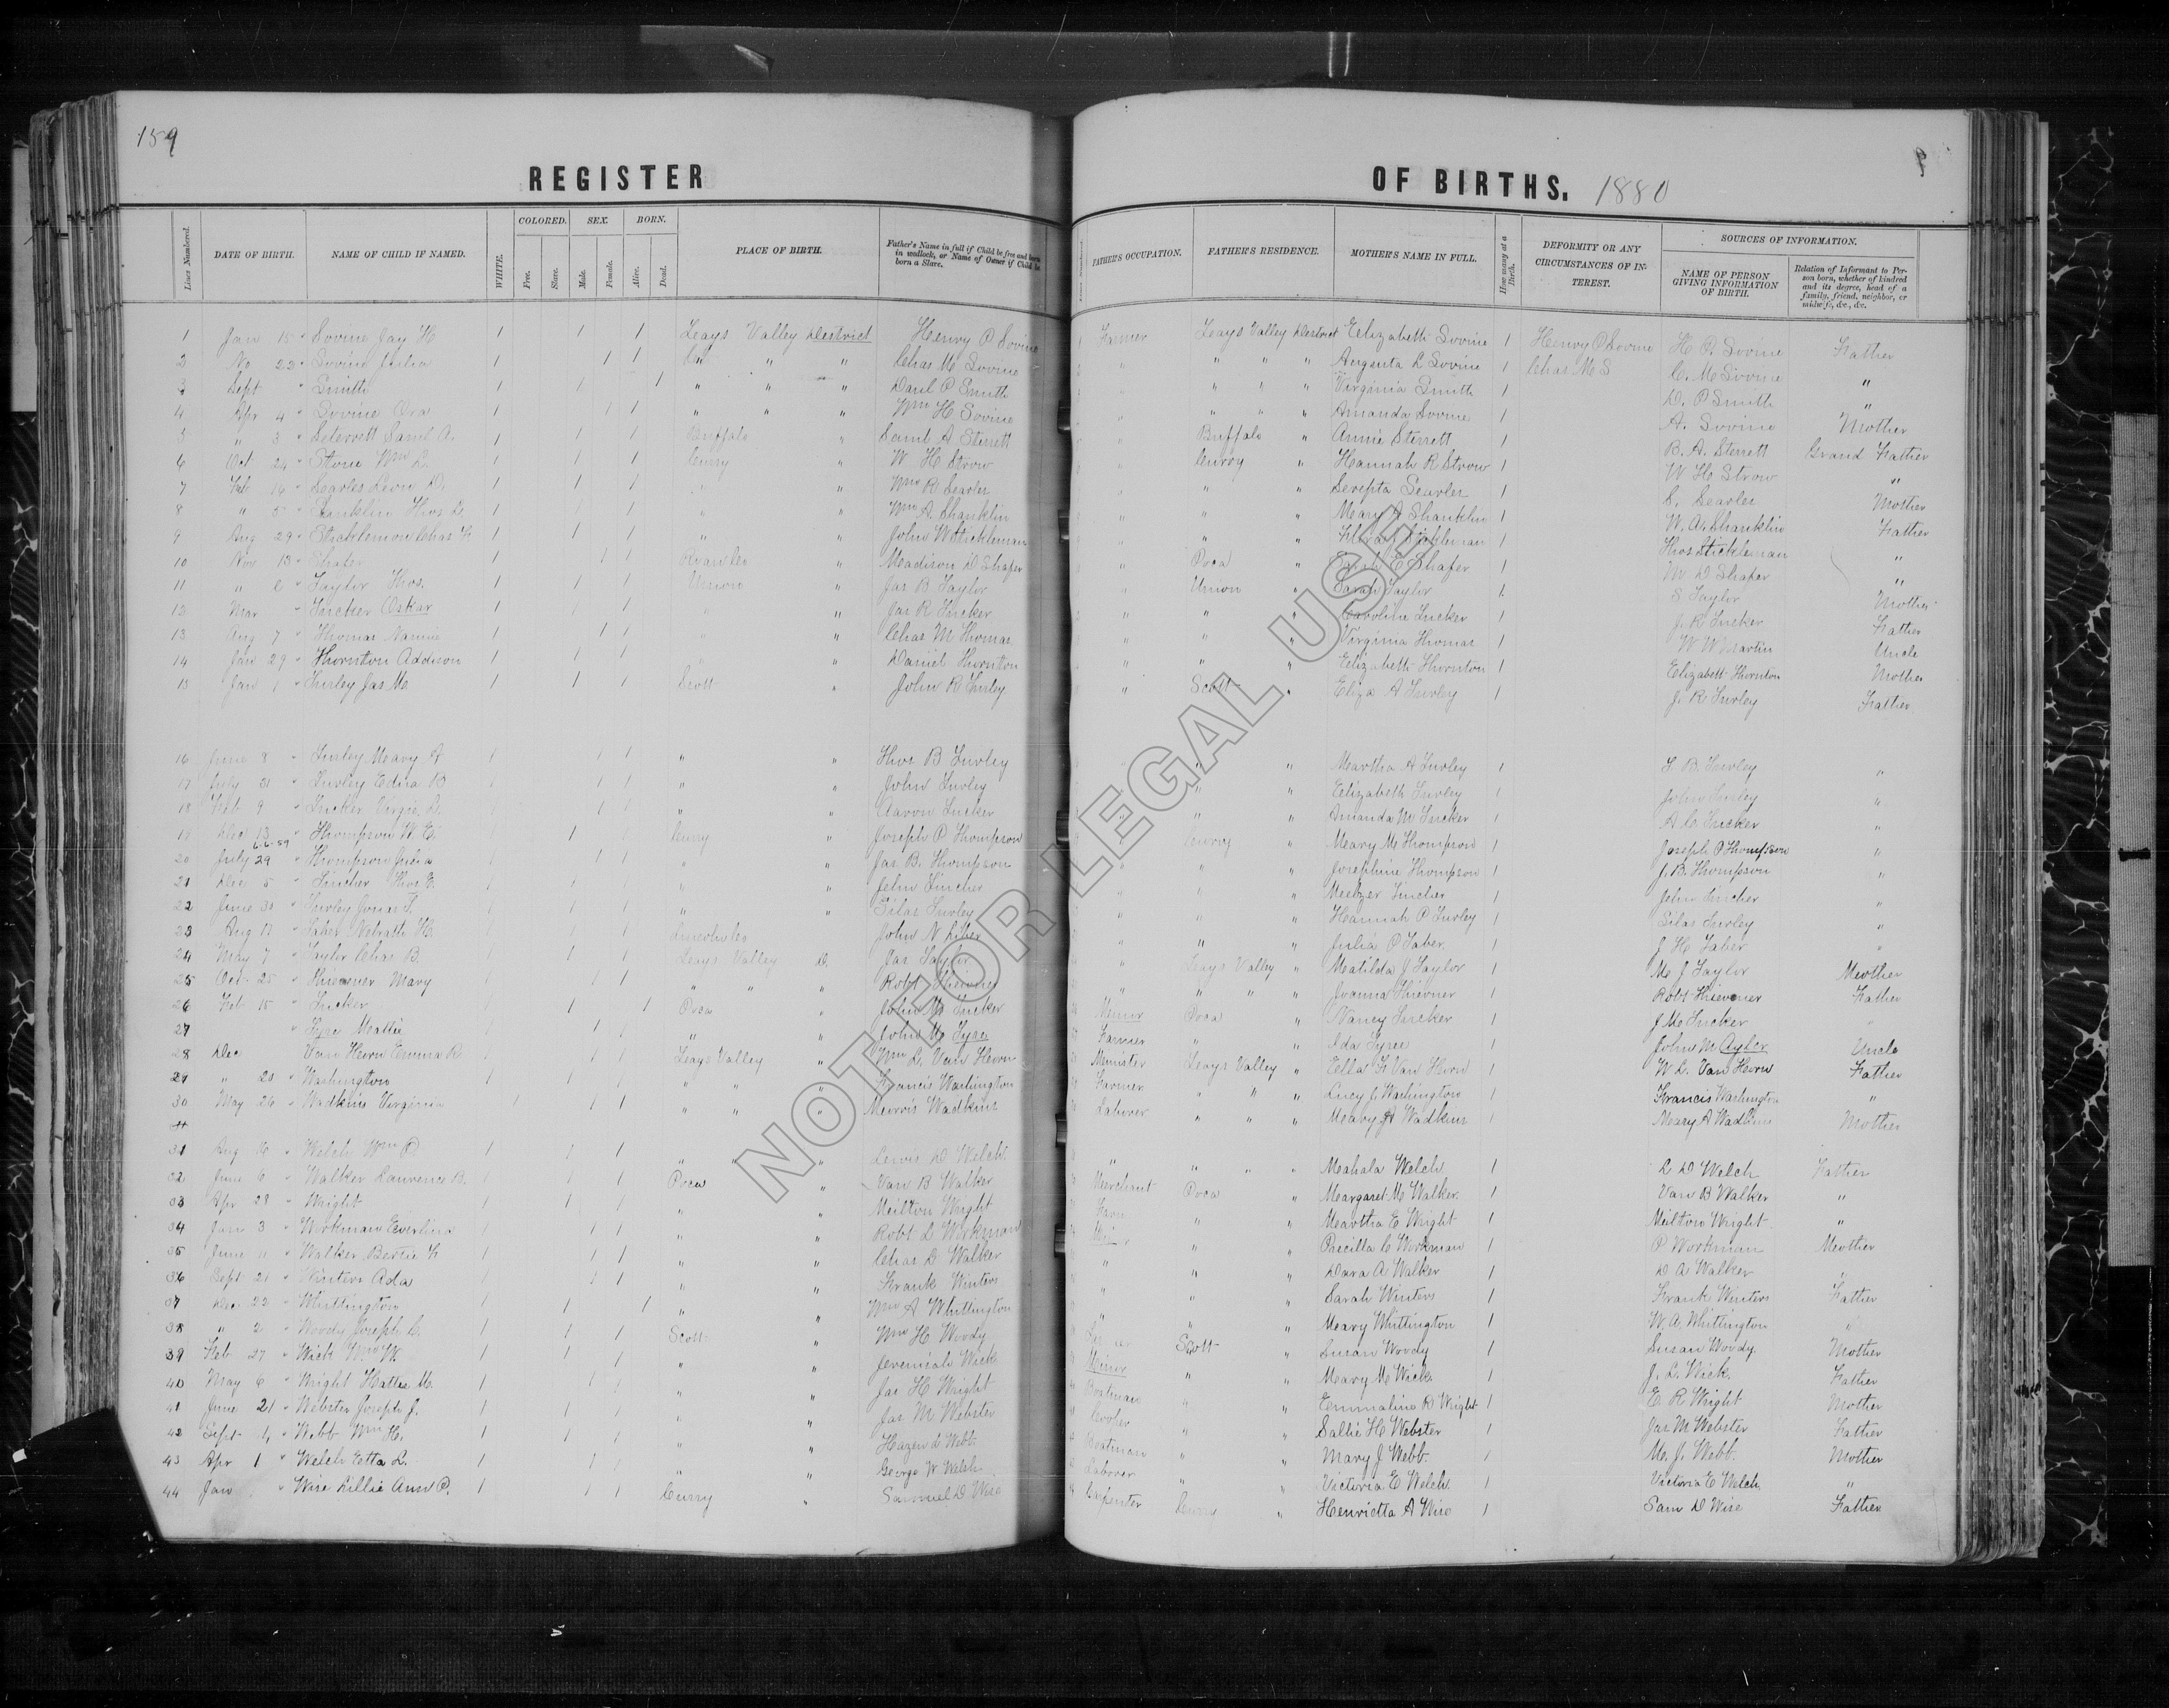 159
REGISTER OF BIRTHS. 1880
Lines Numbered. DATE OF BIRTH. NAME OF CHILD IF NAMED. WHITE. COLORED. Free. Slave. SEX. Male. Female. BORN. Alive. Dead. PLACE OF BIRTH. Father's Name in full if Child be free and born in wedlock, or Name of Owner if Child be born a Slave. FATHER'S OCCUPATION. FATHER'S RESIDENCE. MOTHER'S NAME IN FULL. How many at a Birth. DEFORMITY OR ANY CIRCUMSTANCES OF INTEREST. SOURCES OF INFORMATION. NAME OF PERSON GIVING INFORMATION OF BIRTH. Relation of Informant to Person born, whether of kindred and its degree, head of a family, friend, neighbor, or midwife, &c., &c.
1 Jan 15 " Sovine Jay H 1 1 1 Teays Valley District Henry P Sovine Farmer Teays Valley District Elizabeth Sovine 1 Henry P Sovine H P. Sovine Father
2 23 " Sovine Julia 1 1 1 " " " Chas M Sovine " " " " Augusta L Sovine 1 Chas M S C. M Sovine "
3 Sept " Smith 1 1 1 " " " Danl P Smith " " " " Virginia Smith 1 D. P Smith "
4 Apr 4 " Sovine Ora 1 1 1 " " " Wm H Sovine " " " " Amanda Sovine 1 A. Sovine Mother
5 " 3 " Saml A. 1 1 1 Buffalo " Saml A Sterrett " Buffalo " Annie Sterrett 1 B. A. Sterrett Grand Father
6 Oct 24 " Wm L. 1 1 1 Curry " W H Strow " Curry " Hannah R Strow 1 W H Strow "
7 Feb 16 " Searles Levi D. 1 1 1 " " Wm R Searles " " " Serepta Searles 1 S. Searles Mother
8 " 5 " Shanklin Thos L 1 1 1 " " Wm A. Shanklin " " " Mary A Shanklin 1 W. A. Shanklin Father
9 Aug 29 " Chas F 1 1 1 " " John W Stickleman " " " Stickleman 1 Thos Stickleman "
10 Nov 13 " Shafer 1 1 1 Roan Co " Madison D Shafer " Poca " Sarah E Shafer 1 M D Shafer "
11 " 6 " Taylor Thos. 1 1 1 Union " Jas B Taylor " Union " Sarah Taylor 1 S Taylor Mother
12 Mar " Tucker Oskar 1 1 1 " " Jas R Tucker " " " Caroline Tucker 1 J. R. Tucker Father
13 Aug 7 " Thomas Nannie 1 1 1 " " Chas M Thomas " " " Virginia Thomas 1 W W Martin Uncle
14 Jan 29 " Thornton Addison 1 1 1 " " Daniel Thornton " " " Elizabeth Thornton 1 Elizabeth Thornton Mother
15 Jan 1 " Turley Jas M. 1 1 1 Scott " John R Turley " Scott " Eliza A Turley 1 J. R Turley Father
16 June 8 " Turley Mary A 1 1 1 " " Thos B Turley " " Martha A Turley 1 T. B. Turley "
17 July 31 " Turley Edna B 1 1 1 " " John Turley " " Elizabeth Turley 1 John Turley "
18 Feb 9 " Tucker Virgie L. 1 1 1 " " Aaron Tucker " " Amanda M Tucker 1 A. C. Tucker "
19 Dec 13 " Thompson W. E. 1 1 1 Curry " Joseph P Thompson Curry " Mary M Thompson 1 Joseph P Thompson "
6-6-59
20 July 29 " Thompson Julia 1 1 1 " " Jas. B. Thompson " " " Josephine Thompson 1 J. B. Thompson "
21 Dec 5 " Tincher Thos E. 1 1 1 " " John Tincher " " " Tincher 1 John Tincher "
22 June 30 " Turley Jonas F. 1 1 1 " " Silas Turley " " " Hannah P Turley 1 Silas Turley "
23 Aug 12 " Taber 1 1 1 Lincoln Co John N " " " Julia P Taber 1 J H Taber "
24 May 7 " Taylor Chas B. 1 1 1 Teays Valley D. Jas Taylor " Teays Valley " Matilda J Taylor 1 M. J Taylor Mother
25 Oct. 25 " Mary 1 1 1 " " " Robt " " " " Joanna Thievner 1 Robt Thievener Father
26 Feb 15 " Tucker 1 1 1 Poca " John M Tucker Minor Poca " Nancy Tucker 1 J M Tucker "
27 " Tyre Mattie 1 1 " " John M. Tyre Farmer " " Ida Tyree 1 John M Ayler Uncle
28 Dec Van Horn Emma R 1 1 1 Teays Valley " Wm L. Van Horn Minister Teays Valley " Ella F Van Horn 1 W L. Van Horn Father
29 " 20 " Washington 1 1 1 " " " Francis Washington Farmer " " " Lucy C Washington 1 Francis Washington "
30 May 26 " Wadkins Virginia 1 1 1 " " " Morris Wadkins Laborer " " " Mary A Wadkins 1 Mary A Wadkins Mother
31 Aug 16 " Welch Wm P 1 1 1 " " " Lewis D Welch " " " " Mahala Welch 1 L D Welch Father
32 June 6 " Walker Laurence B. 1 1 1 Poca " Van B Walker Merchant Poca " Margaret M Walker 1 Van B Walker "
33 Apr 28 " Wright 1 1 1 " " Milton Wright " " Martha E Wright 1 Milton Wright "
34 Jan 3 " Workman Everlina 1 1 1 " " Robt L Workman " " Precilla C Workman 1 P Workman Mother
35 June 11 " Walker Bertie F 1 1 1 " " Chas D Walker " " " Dora A Walker 1 D A Walker "
36 Sept 21 " Winters Ada 1 1 1 " " Frank Winters " " " Sarah Winters 1 Frank Winters Father
37 Dec 22 " Whittington 1 1 1 " " Wm A Whittington " " " Mary Whittington 1 W. A. Whittington "
38 " 2 " Woody Joseph C. 1 1 1 Scott " Wm H Woody Scott " Susan Woody 1 Susan Woody Mother
39 Feb 27 " Wick Wm W. 1 1 1 " " Jeremiah Wick Minor " " Mary M Wick 1 J. L. Wick Father
40 May 6 " Wright Hattie M. 1 1 1 " " Jas H Wright Boatman " " Emmaline R Wright 1 E R Wright Mother
41 June 21 " Webster Joseph J. 1 1 1 " " Jas M Webster Cooper " " Sallie H Webster 1 Jas M Webster Father
42 Sept " Webb Wm H. 1 1 1 " " Hazen L Webb Boatman " " Mary J Webb 1 M. J. Webb. Mother
43 Apr 1 " Welch Etta L. 1 1 1 " " George W Welch Laborer " " Victoria E Welch 1 Victoria E Welch "
44 Jan " Wise Lillie Ann P. 1 1 1 Curry " Samuel D Wise Carpenter Curry " Henrietta A Wise 1 Sam D Wise Father
NOT FOR LEGAL USE